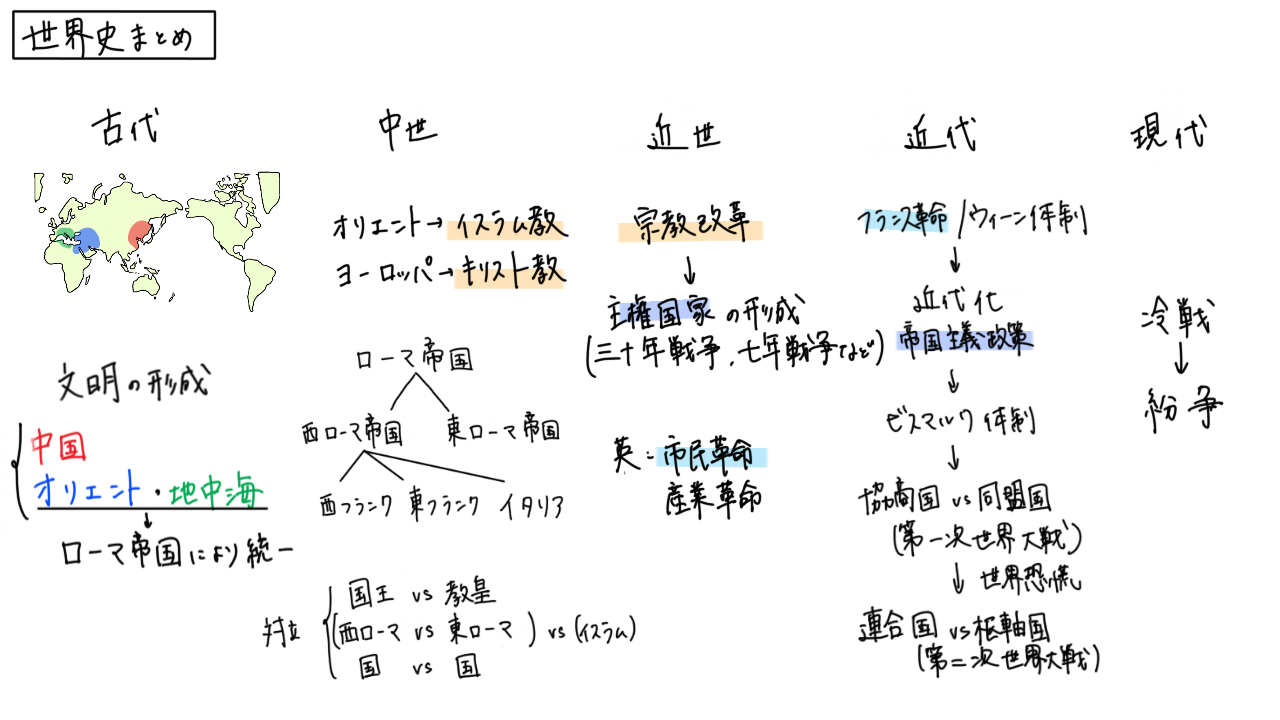 世界史まとめ
古代
文明の形成
中国
オリエント・地中海
↓
ローマ帝国により統一
中世
オリエント→イスラム教
ヨーロッパ→キリスト教
ローマ帝国
西ローマ帝国 東ローマ帝国
西フランク 東フランク イタリア
対立
国王 vs 教皇
(西ローマ vs 東ローマ) vs (イスラム)
国 vs 国
近世
宗教改革
↓
主権国家の形成
(三十年戦争、七年戦争など)
英:市民革命
産業革命
近代
フランス革命/ウィーン体制
↓
近代化
帝国主義政策
↓
ビスマルク体制
↓
協商国 vs 同盟国
(第一次世界大戦)
↓ 世界恐慌
連合国 vs 枢軸国
(第二次世界大戦)
現代
冷戦
↓
紛争